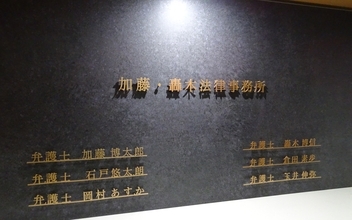 加藤・轟木法律事務所
弁護士 加藤 博太郎
弁護士 石戸 悠太朗
弁護士 岡村 あすか
弁護士 轟木 博信
弁護士 倉田
弁護士 玉井 伸弥